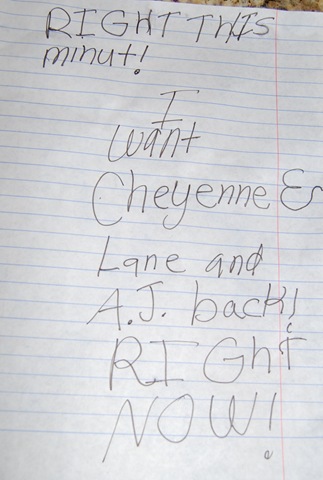 RIGHT THIS
minut!
I
want
Cheyenne &
Lane and
A.J. back!
RIGHt
NOW!